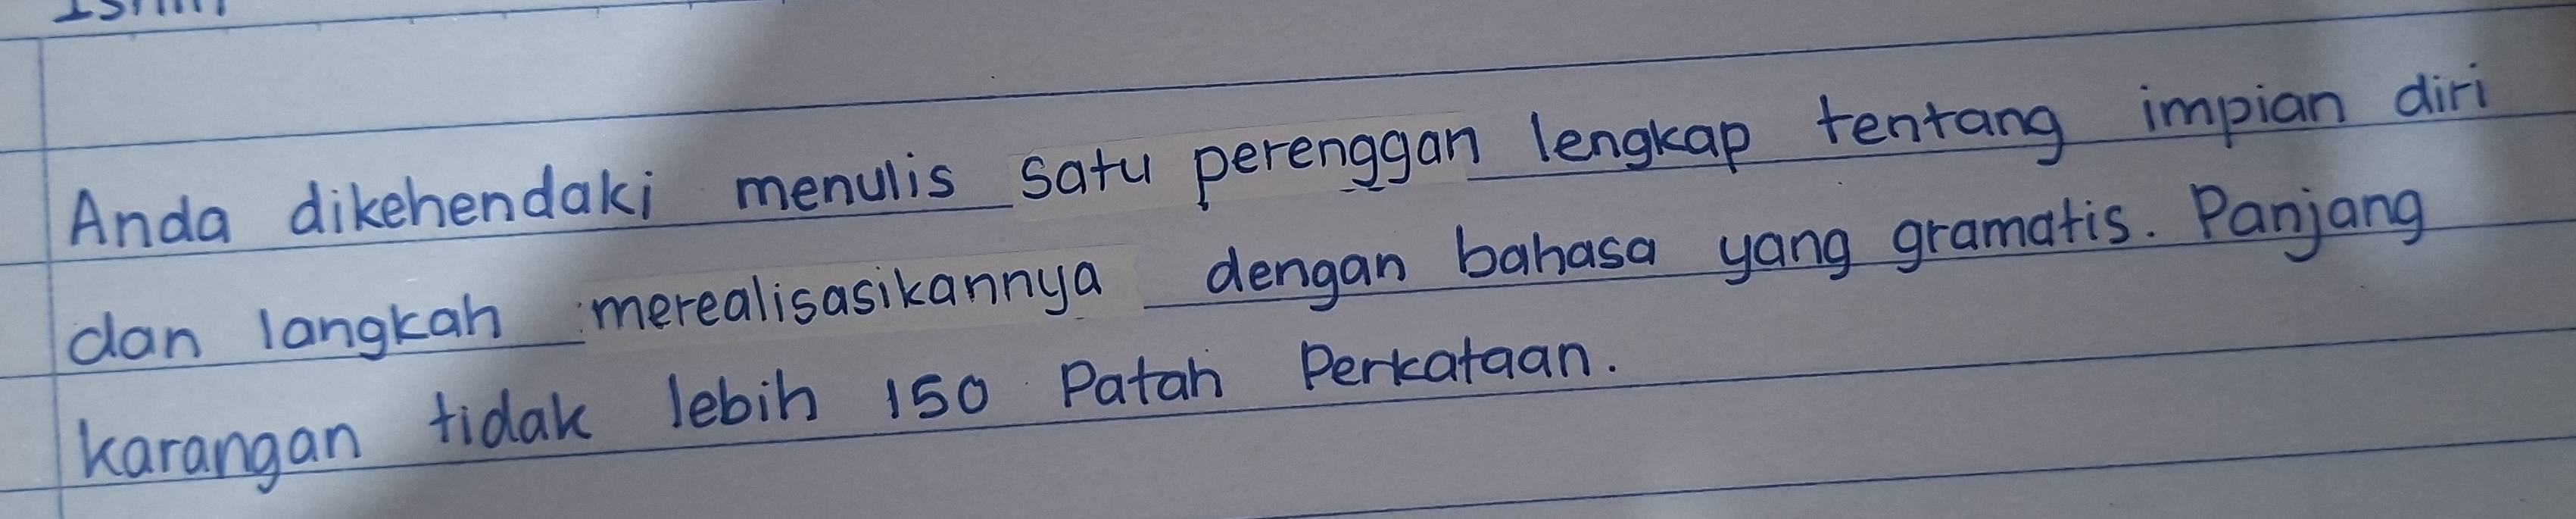 Anda dikehendaki menulis satu perenggan lengkap tentang impian diri
dan langkah merealisasikannya dengan bahasa yang gramatis. Panjang
karangan tidak lebih 150 Patah Perkataan.